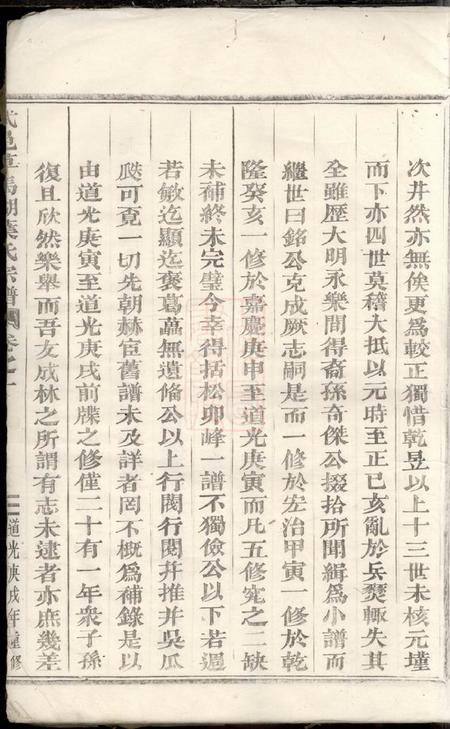 次井然亦無俟更為較正獨惜乾昱以上十三世未核元墐
而下亦四世莫稽大抵以元時至正己亥亂於兵燹輒失其
全雖歷大明永樂間得裔孫奇傑公掇拾所聞緝為小譜而
繼世曰銘公克成厥志嗣是而一修於宏治甲寅一修於乾
隆癸亥一修於嘉慶庚申至道光庚寅而凡五修究之二缺
未補終未完璧今幸得括松卯峰一譜不獨儉公以下若迥
若敏迄顯迄褒葛藟無遺脩公以上行閱行閱并推并吳瓜
瓞可竟一切先朝赫宦舊譜未及詳者罔不概為補錄是以
由道光庚寅至道光庚戌前牒之修僅二十有一年眾子孫
復且欣然樂舉而吾友成林之所謂有志未逮者亦庶幾差
武邑 馬湖葉氏宗譜 卷之一
道光庚戌年重修